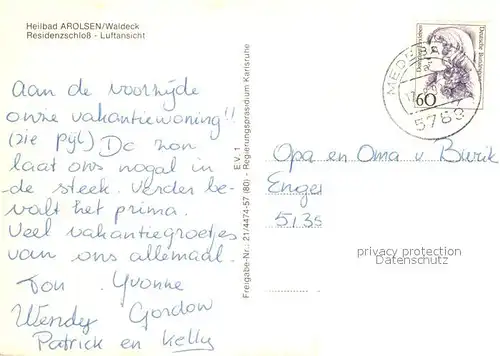 Heilbad AROLSEN/Waldeck
Residenzschloß - Luftansicht
Aan de voorzijde
onze vakantiewoning!!
(zie pijl) De zon
laat ons nogal in
de steek. Verder be-
valt het prima.
Veel vakantiegroetjes
van ons allemaal.
Ton Yvonne
Wendy Gordon
Patrick en Kelly
Freigabe-Nr.: 21/4474-57 (80) - Regierungspräsidium Karlsruhe
E.V. 1
60
Deutsche Bundespost
MEDEB
5789
Opa en Oma v
Enge
513
privacy protection
Datenschutz